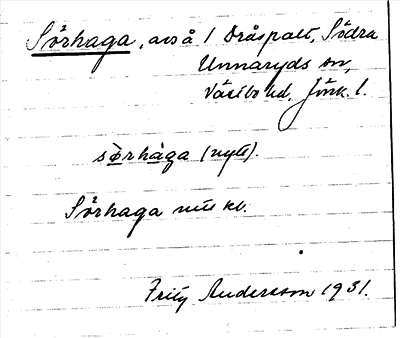 Sörhaga, avs å 1 Dråspalt, Södra
Unnaryds sn,
Västbo hd, Jönk. l.
sörhaga (nytt).
Sörhaga mtl kb.
Fritz Andersson 1931.